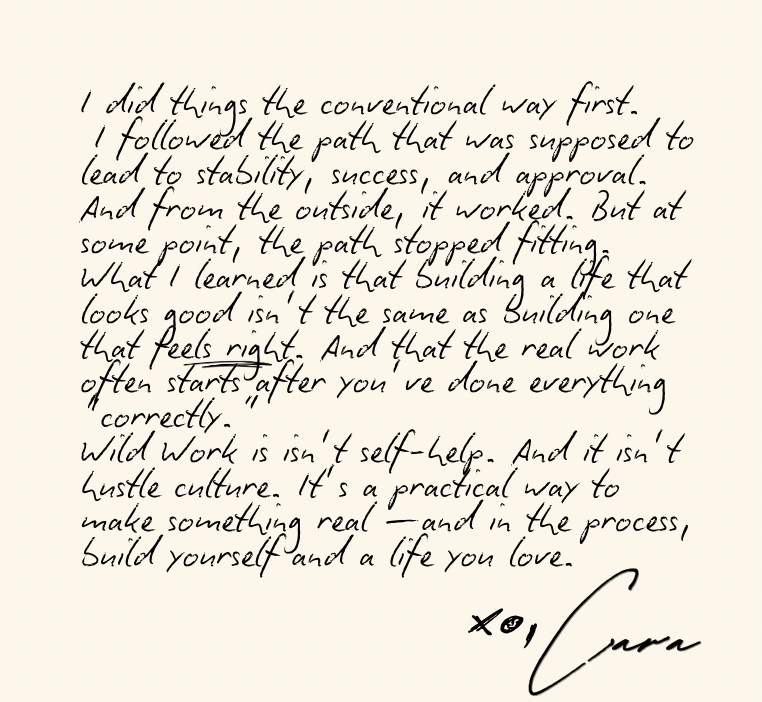 I did things the conventional way first.
I followed the path that was supposed to
lead to stability, success, and approval.
And from the outside, it worked. But at
some point, the path stopped fitting.
What I learned is that building a life that
looks good isn't the same as building one
that feels right. And that the real work
often starts after you've done everything
"correctly."
Wild Work is isn't self-help. And it isn't
hustle culture. It's a practical way to
make something real —and in the process,
build yourself and a life you love.
xo, Cara